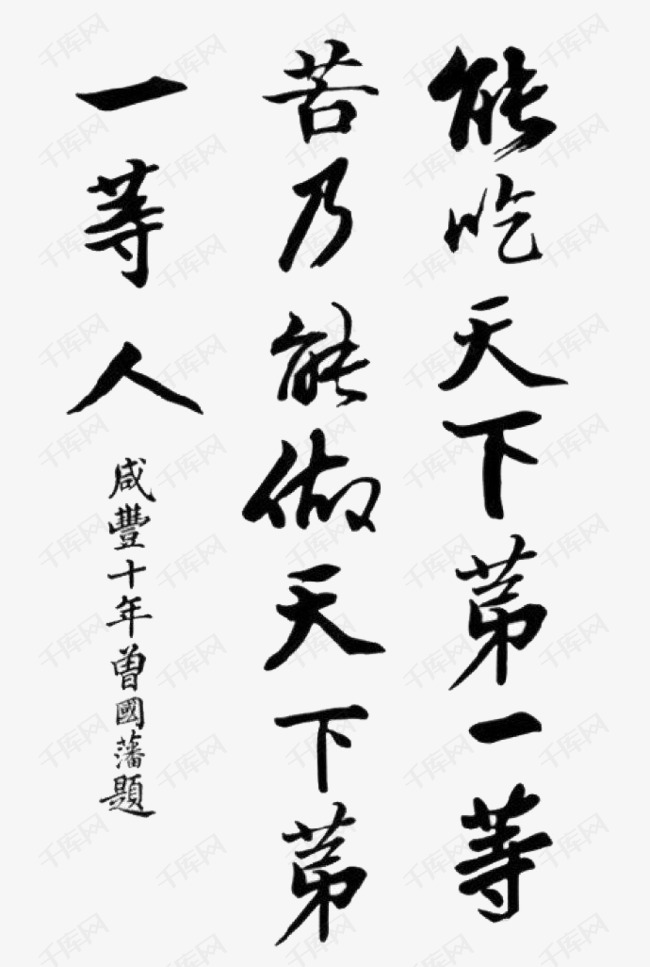 能吃天下第一等
苦乃能做天下第
一等人
咸豐十年曾國藩題
千库网